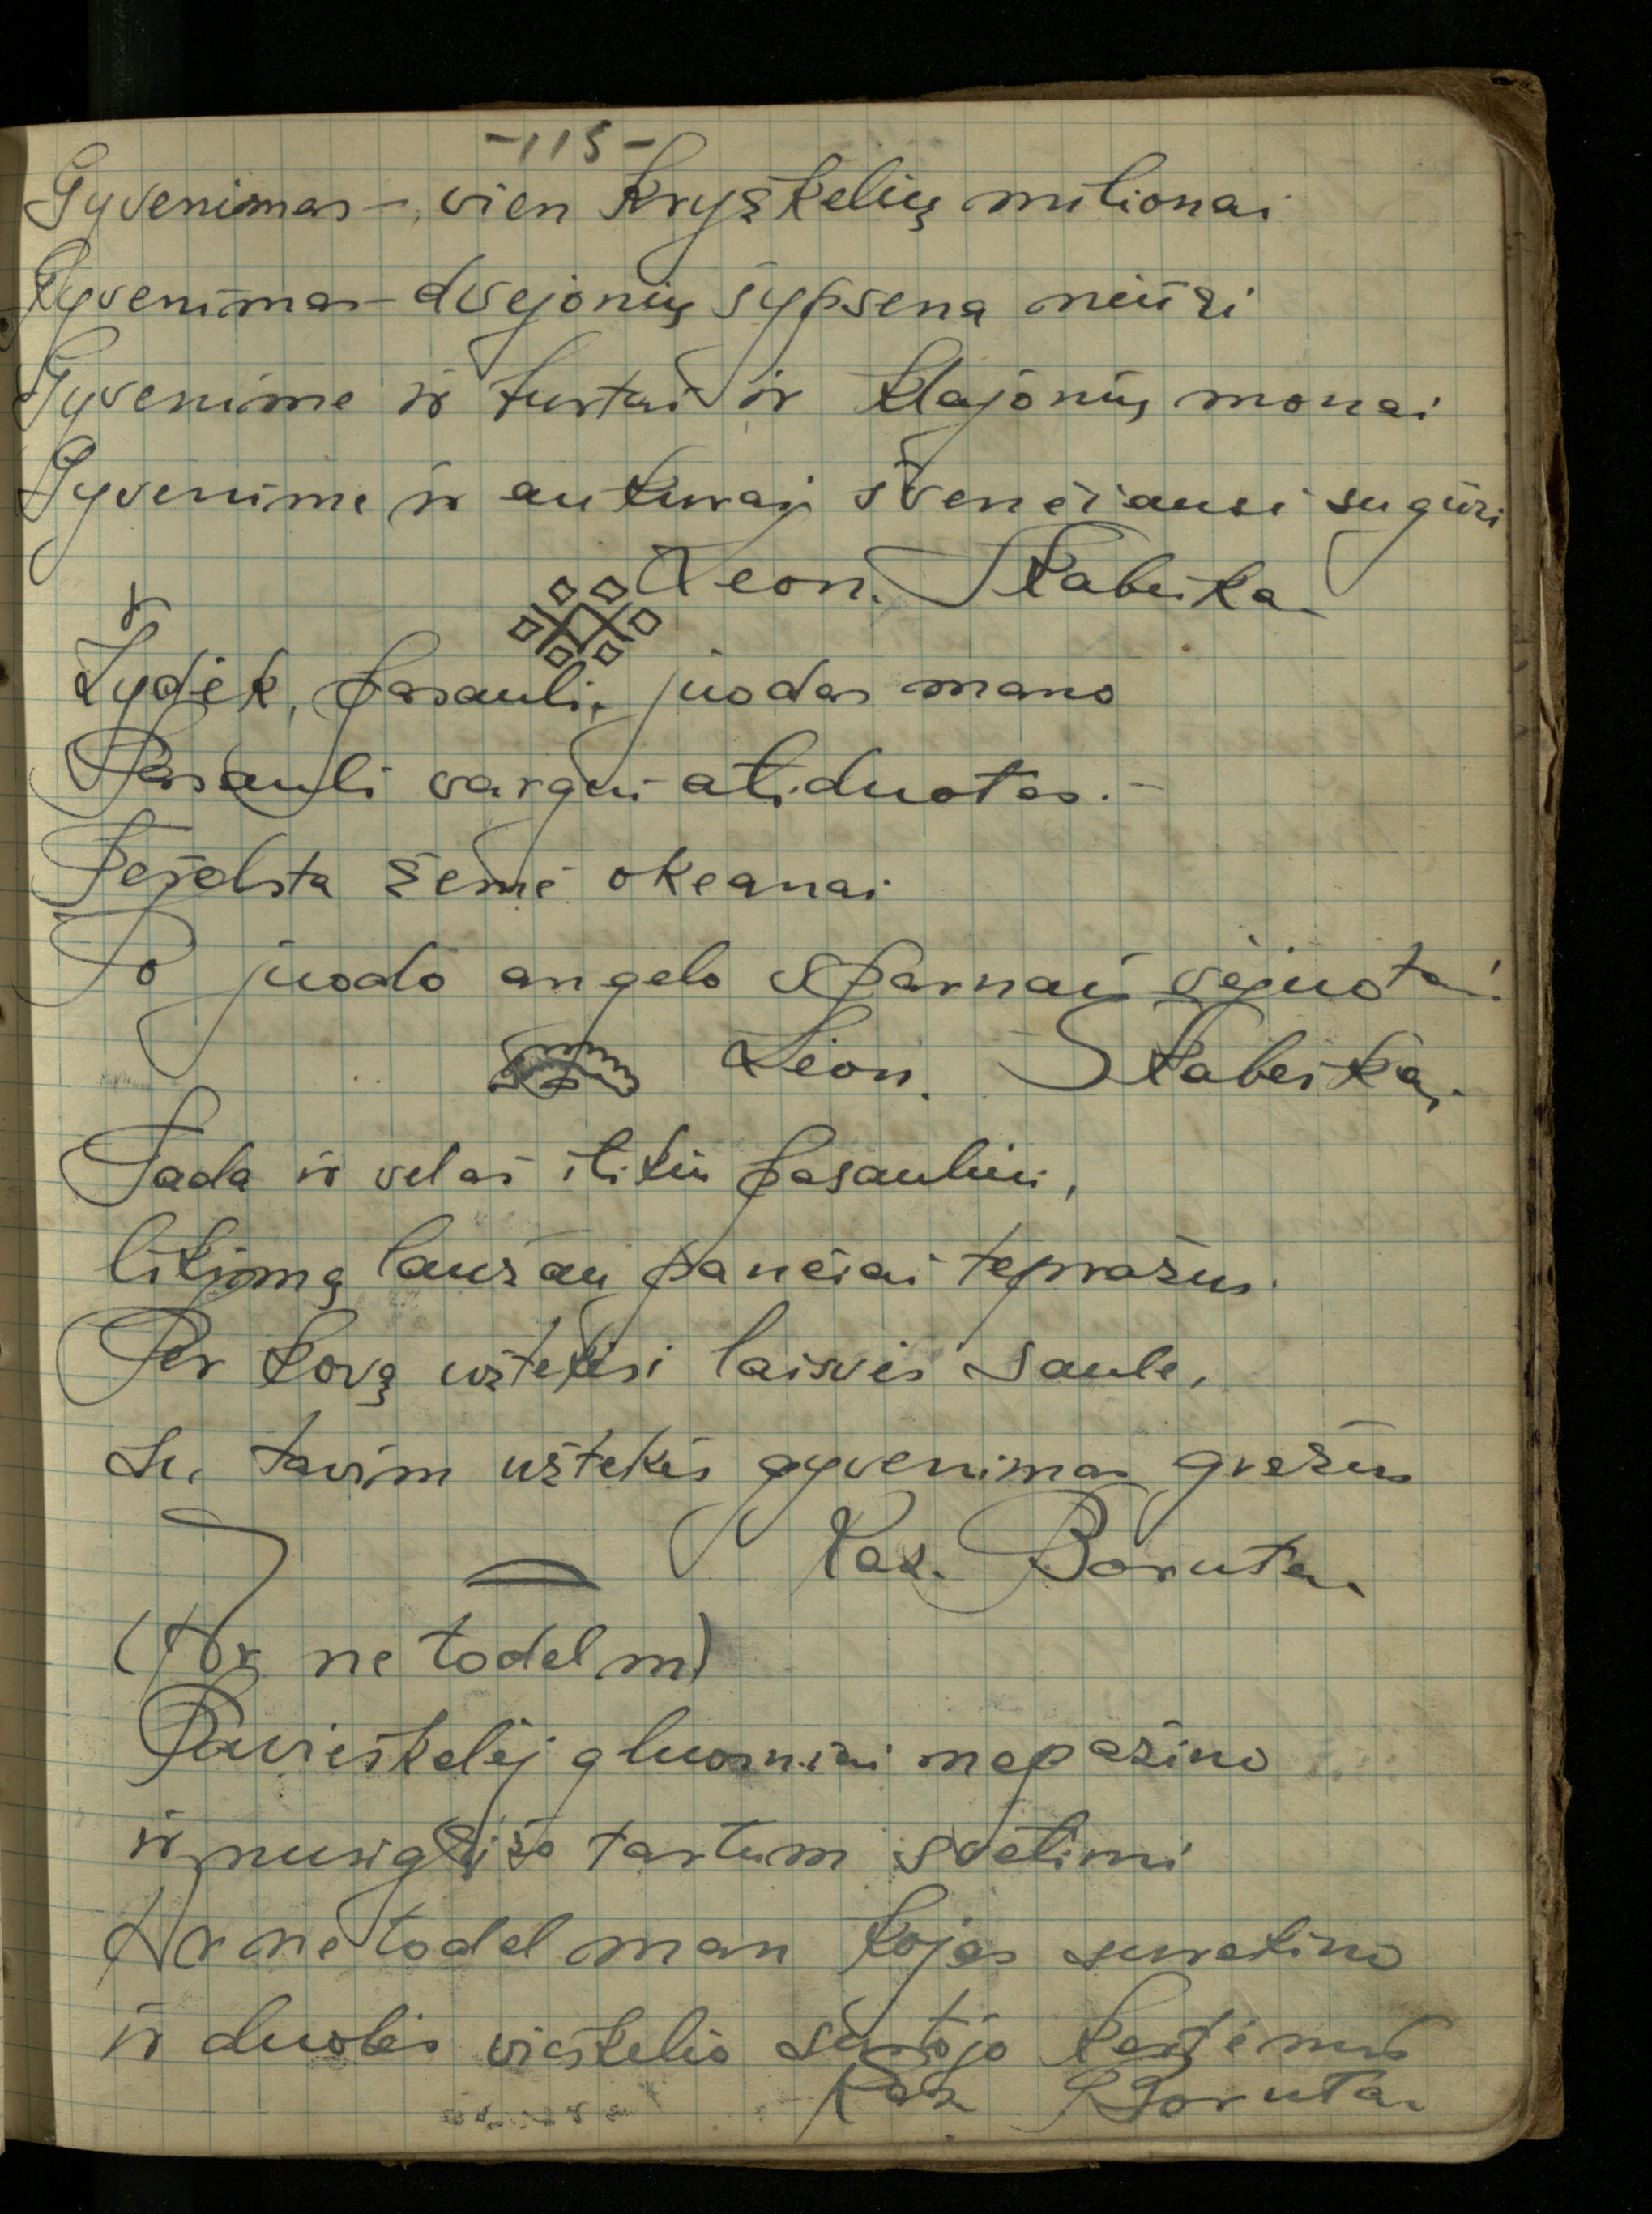 -115-
Gyvenimas – vien kryžkelių milionai
Gyvenimas – dvejonių šypsena niūri
Gyvenime ir turtai ir klajonių monai
Gyvenime ir aukurai švenčiausi sugiūri
Leon. Skabeika
Žydėk, pasauli, juodas mano
Pasauli vargui atiduotas. –
Težolsta žemė okeanai
Po juodo angelo sparnais vėjuotais
Leon. Skabeika.
Tada ir vėlai itikiu pasauliui,
likimą laužau pančiai tepražus.
Per kovą užtekėsi laisvės saule,
su tavim užtekės gyvenimas gražus
Kaz. Boruta
(Ar ne todel m)
Pavieškelėj gluosniai nepažino
ir nusigrįžo tartum svetimi
Ar ne todel man kojas surakino
ir duobės vieškelio sustojo
Kaz. Boruta